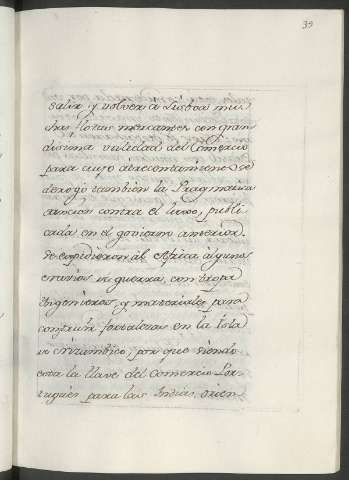 39
salir y volver a Lisboa mu-
chas flotas mercantes con gran-
dissima utilidad del Comercio
para cuyo acrecentamiento se
derogó tambien la Pragmatica
sancion contra el luxo, publi
cada en el govierno anterior.
Se expidieron al Africa algunos
navios de guerra, con tropa
Ingenieros, y materiales para
construir fortalezas en la Isla
de Mozambico, por que siendo
esta la llave del Comercio Por-
tugués para las Indias, orien-